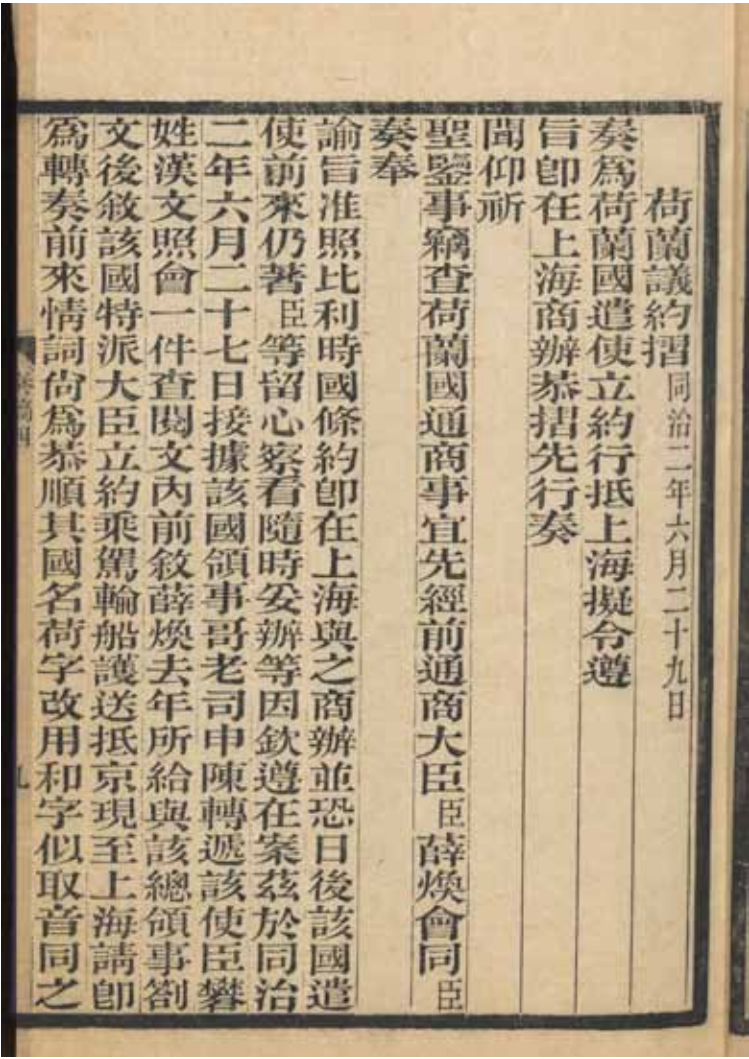 荷蘭議約摺同治二年六月二十九日
奏爲荷蘭國遣使立約行抵上海擬令遵
旨卽在上海商辦恭摺先行奏
聞仰祈
聖鑒事竊查荷蘭國通商事宜先經前通商大臣臣薛煥會同臣
奏奉
諭旨准照比利時國條約卽在上海與之商辦並恐日後該國遣
使前來仍著臣等留心察看隨時妥辦等因欽遵在案茲於同治
二年六月二十七日接據該國領事哥老司申陳轉遞該使臣礬
姓漢文照會一件查閱文內前敘薛煥去年所給與該總領事劄
文後敘該國特派大臣立約乘駕輪船護送抵京現至上海請卽
爲轉奏前來情詞尙爲恭順其國名荷字改用和字似取音同之
九